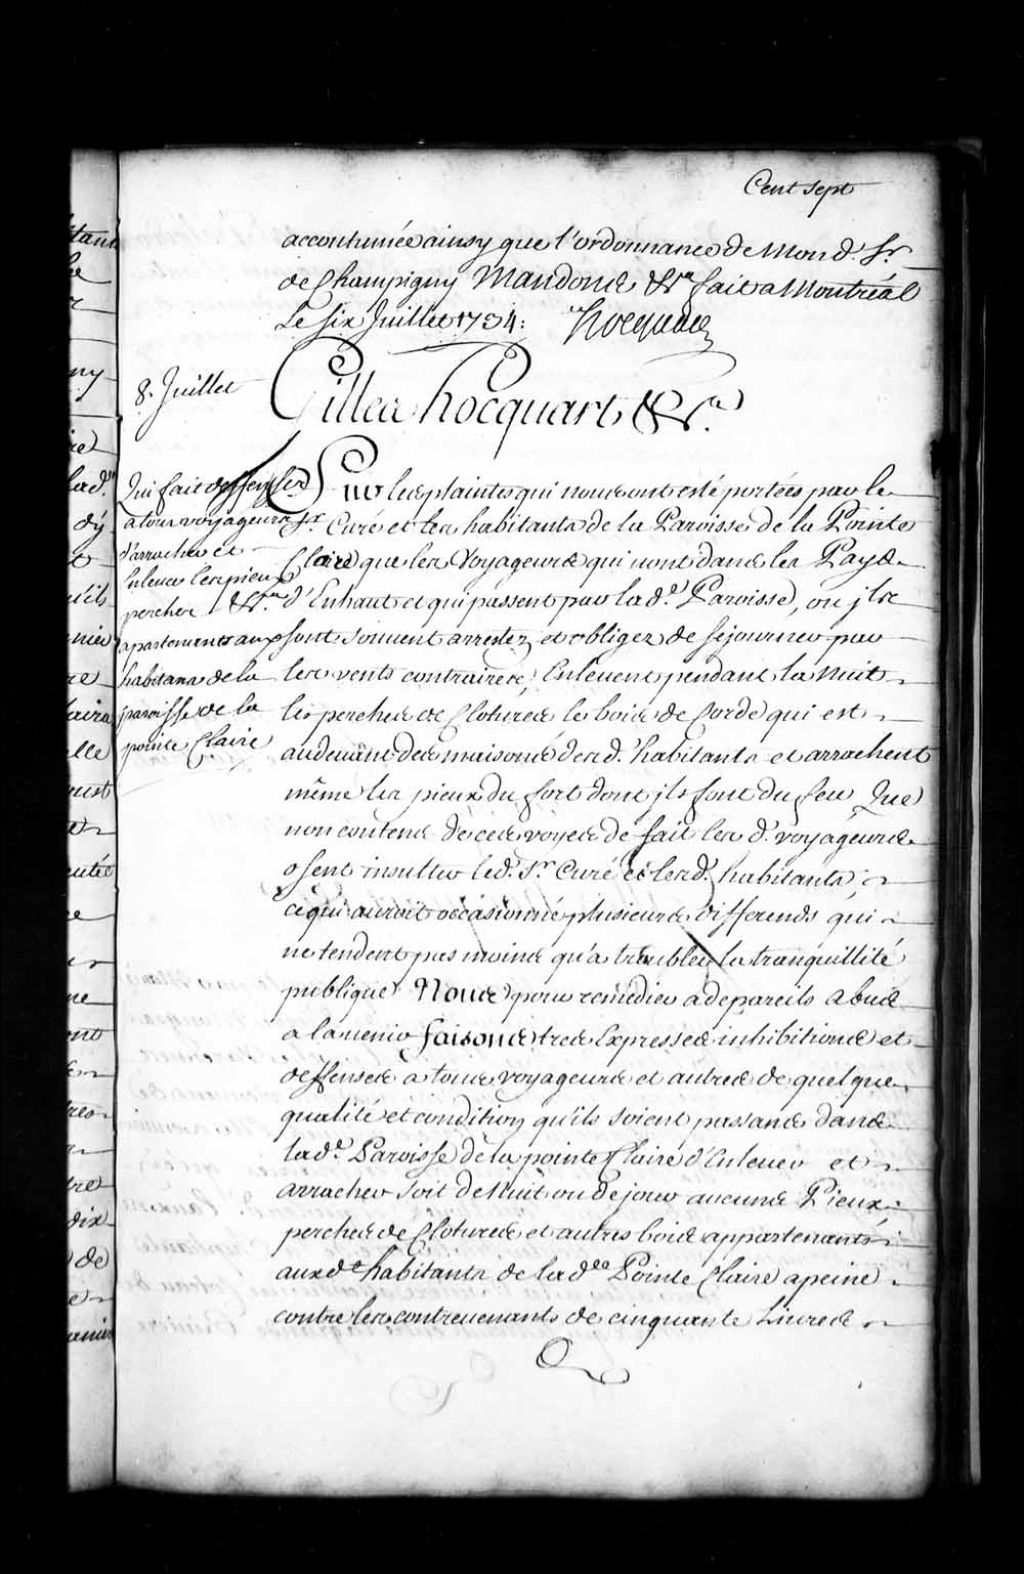 Cent sept
accoutumée ainsy que l'ordonnance de Mond. Sr.
de Champigny Mandons &ra fait a Montréal
Le six Juillet 1734: Hocquart
8. Juillet
Gilles hocquart &ra.
Qui fait deffenses
a tous voyageurs
d'arracher et
Enlever les pieux
perches &ra.
apartenants aux
habitans de la
paroisse de la
pointe Claire
Sur les plaintes qui nous ont esté portées par le
Sr. Curé et les habitants de la Paroisse de la Pointe
Claire que les Voyageurs qui vont dans les Pays
d'Enhaut et qui passent par lad.e Paroisse, ou jls
sont souvent arrestez et obligez de sejourner par
les vents contraires, Enlevent pendant la Nuit
les perches de Clotures le bois de Corde qui est
audevant des maisons desd. habitants et arrachent
même les pieux du fort dont jls font du feu Que
non contens de ces voyes de fait lesd. voyageurs
osent insulter led. Sr. Curé et lesd. habitants,
ce qui auroit occasionné plusieurs differends qui
ne tendent pas moins qu'a troubler la tranquillité
publique Nous pour remedier a de pareils abus
a l'avenir faisons tres Expresses inhibitions et
deffenses a tous voyageurs et autres de quelque
qualité et condition qu'ils soient passans dans
lad.e Paroisse de la pointe Claire d'Enlever et
arracher soit de Nuit ou de jour aucuns Pieux
perches de Clotures et autres bois appartenants
auxd.t habitants de lad.ee Pointe Claire a peine
contre les contrevenants de cinquante Livres